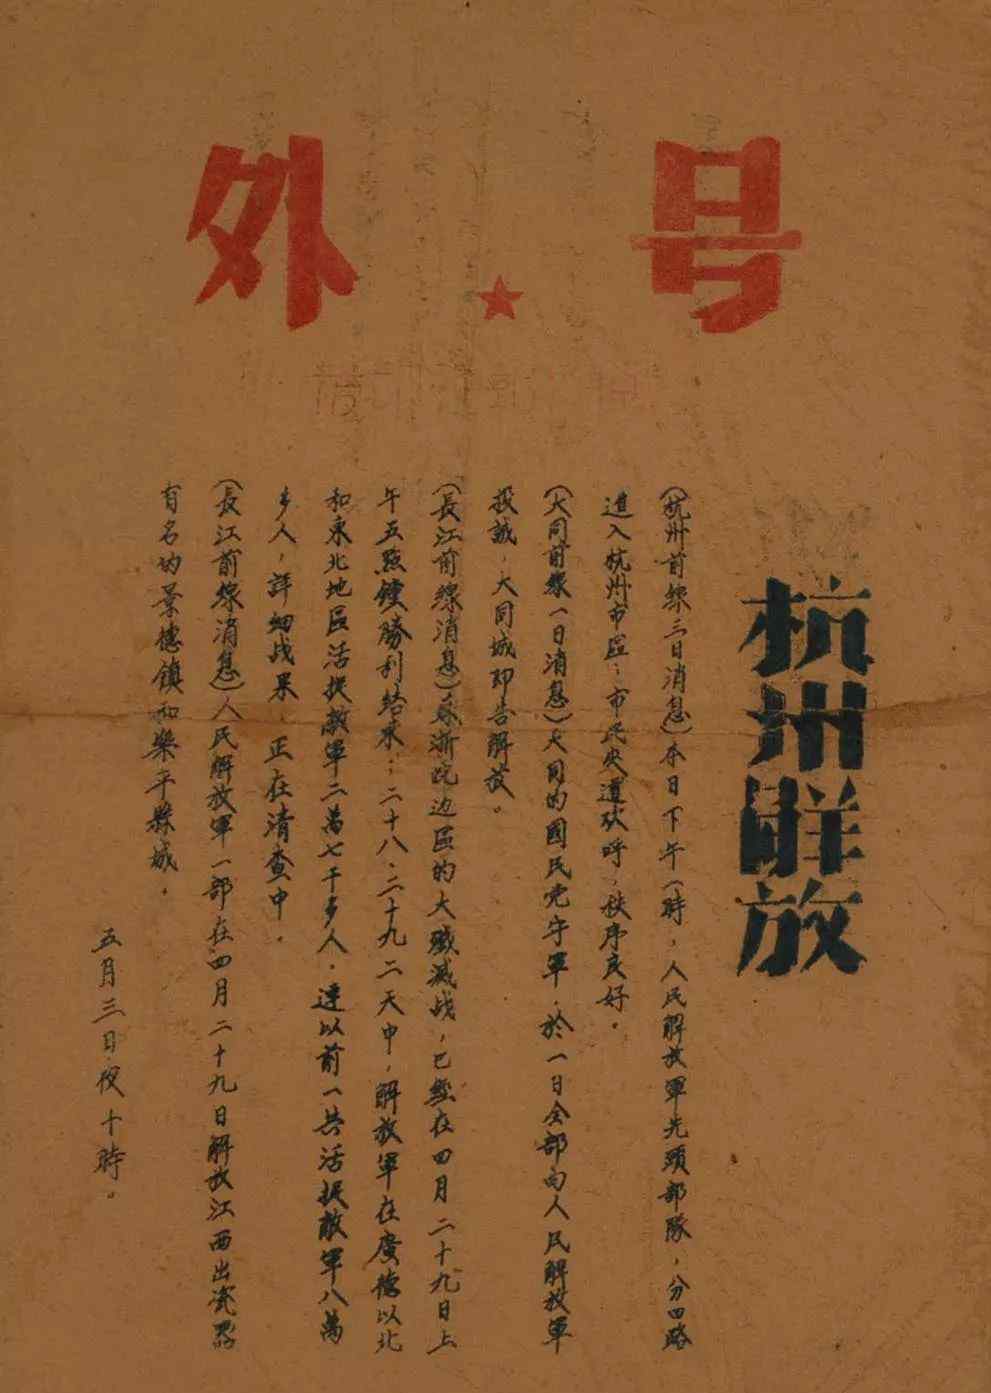 号外
杭州解放
(杭州前線三日消息)本日下午一時,人民解放軍先頭部隊,分四路
進入杭州市區;市民夾道欢呼,秩序良好。
(大同前線一日消息)大同的國民党守軍,於一日全部向人民解放軍
投誠,大同城即告解放。
(長江前線消息)苏浙皖边區的大殲滅战,已經在四月二十九日上
午五點鐘勝利结束;二十八、二十九二天中,解放軍在廣德以北
和東北地區活捉敵軍二萬七千多人,連以前一共活捉敵軍八萬
多人,詳細战果,正在清查中。
(長江前線消息)人民解放軍一部在四月二十九日解放江西出瓷器
有名的景德鎮和樂平縣城。
五月三日夜十時。